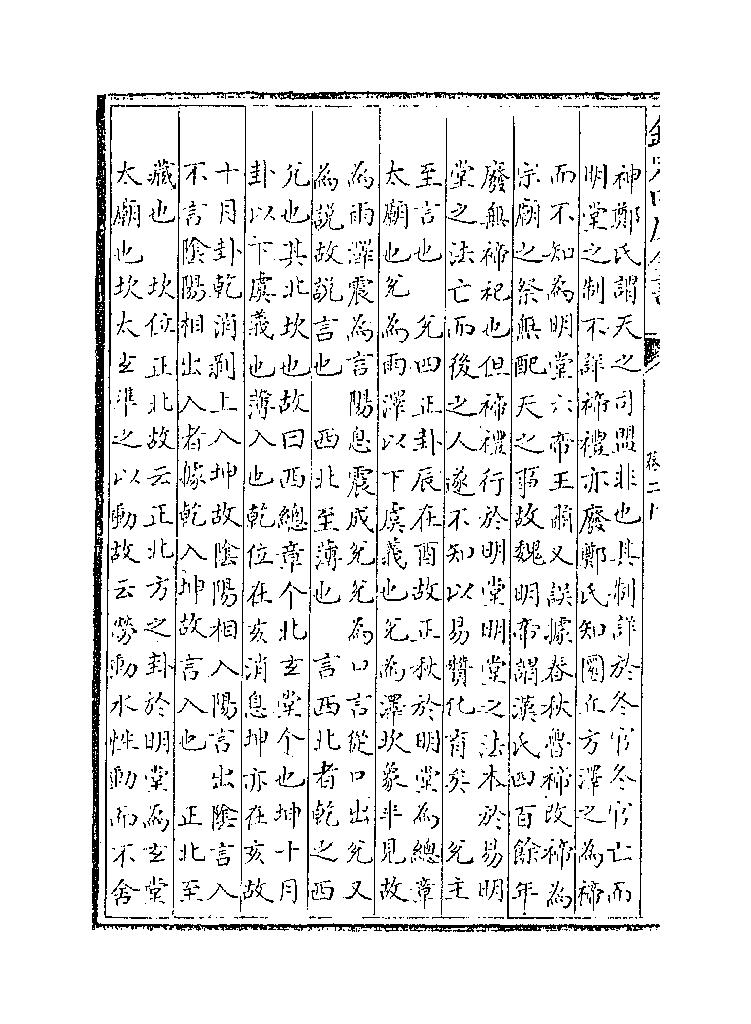 欽定四庫全書
卷二十
神鄭氏謂天之司盟非也其制詳於冬官冬官亡而
明堂之制不詳禘禮亦廢鄭氏知圜丘方澤之為禘
而不知為明堂六帝王肅又誤據春秋魯禘改禘為
宗廟之祭無配天之事故魏明帝謂漢氏四百餘年
廢無禘祀也但禘禮行於明堂明堂之法本於易明
堂之法亡而後之人遂不知以易贊化育矣　兌主
至言也　兌四正卦辰在酉故正秋於明堂為總章
太廟也兌為雨澤以下虞義也兌為澤坎象半見故
為雨澤震為言陽息震成兌兌為口言從口出兌又
為説故説言也　西北至薄也　言西北者乾之西
兌也其北坎也故曰西總章个北玄堂个也坤十月
卦以下虞義也薄入也乾位在亥消息坤亦在亥故
十月卦乾消剥上入坤故陰陽相入陽言出陰言入
不言陰陽相出入者據乾入坤故言入也　正北至
藏也　坎位正北故云正北方之卦於明堂為玄堂
太廟也坎太玄準之以動故云勞動水性動而不舍